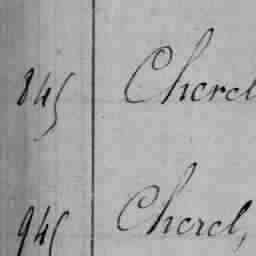 845 Cherel
945 Cherel,